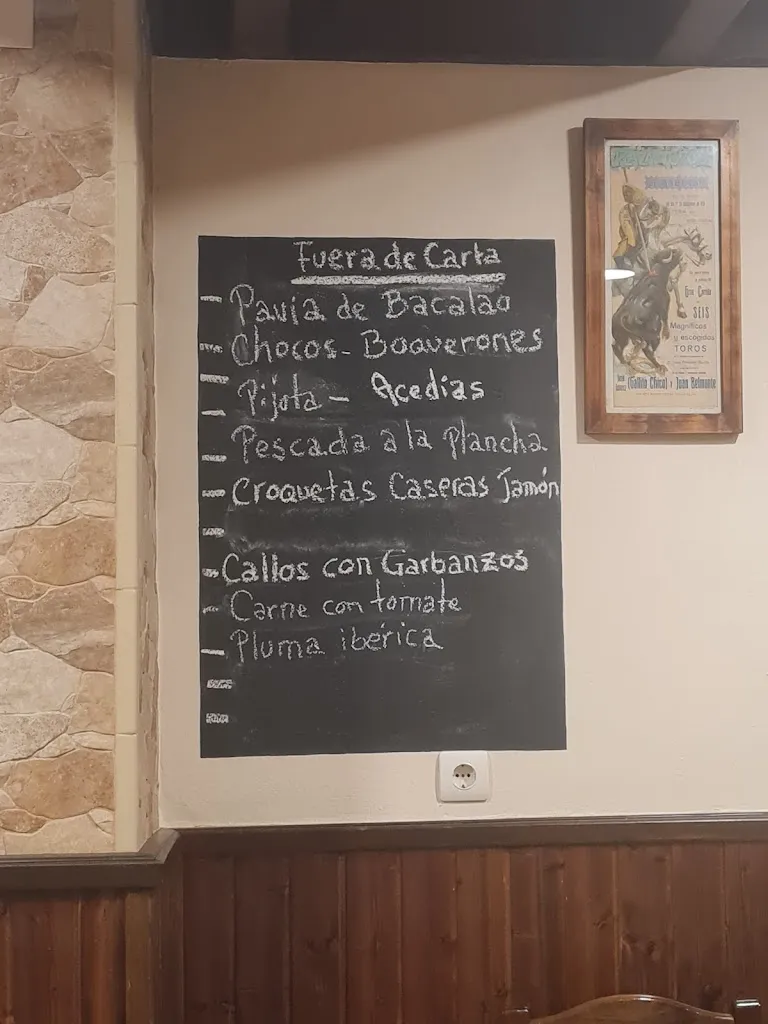 Fuera de Carta
Pavia de Bacalao
Chocos - Boaverones
Pijota - Acedias
Pescada a la Plancha
Croquetas Caseras Jamón
Callos con Garbanzos
Carne con tomate
Pluma ibérica
SEIS
Magníficos
y escogidos
TOROS
(Gallito Chico) y Juan Belmonte